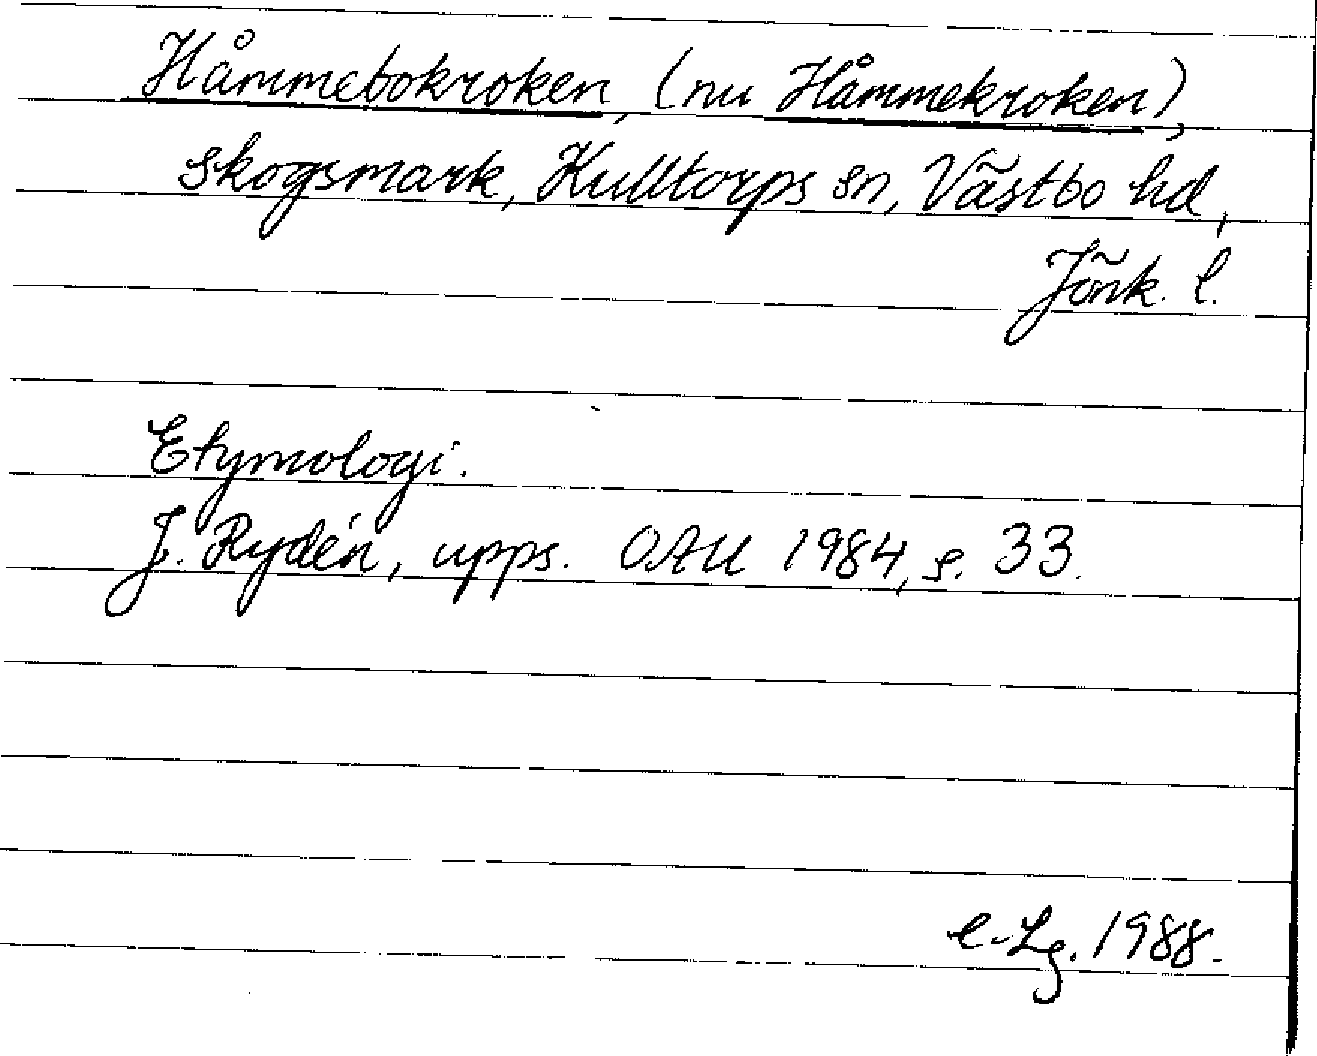 Håmmebokroken, (nu Håmmekroken),
skogsmark, Kulltorps sn, Västbo hd,
Jönk. l.
Etymologi.
J. Rydén, upps. OAU 1984, s. 33.
e-Lg. 1988.